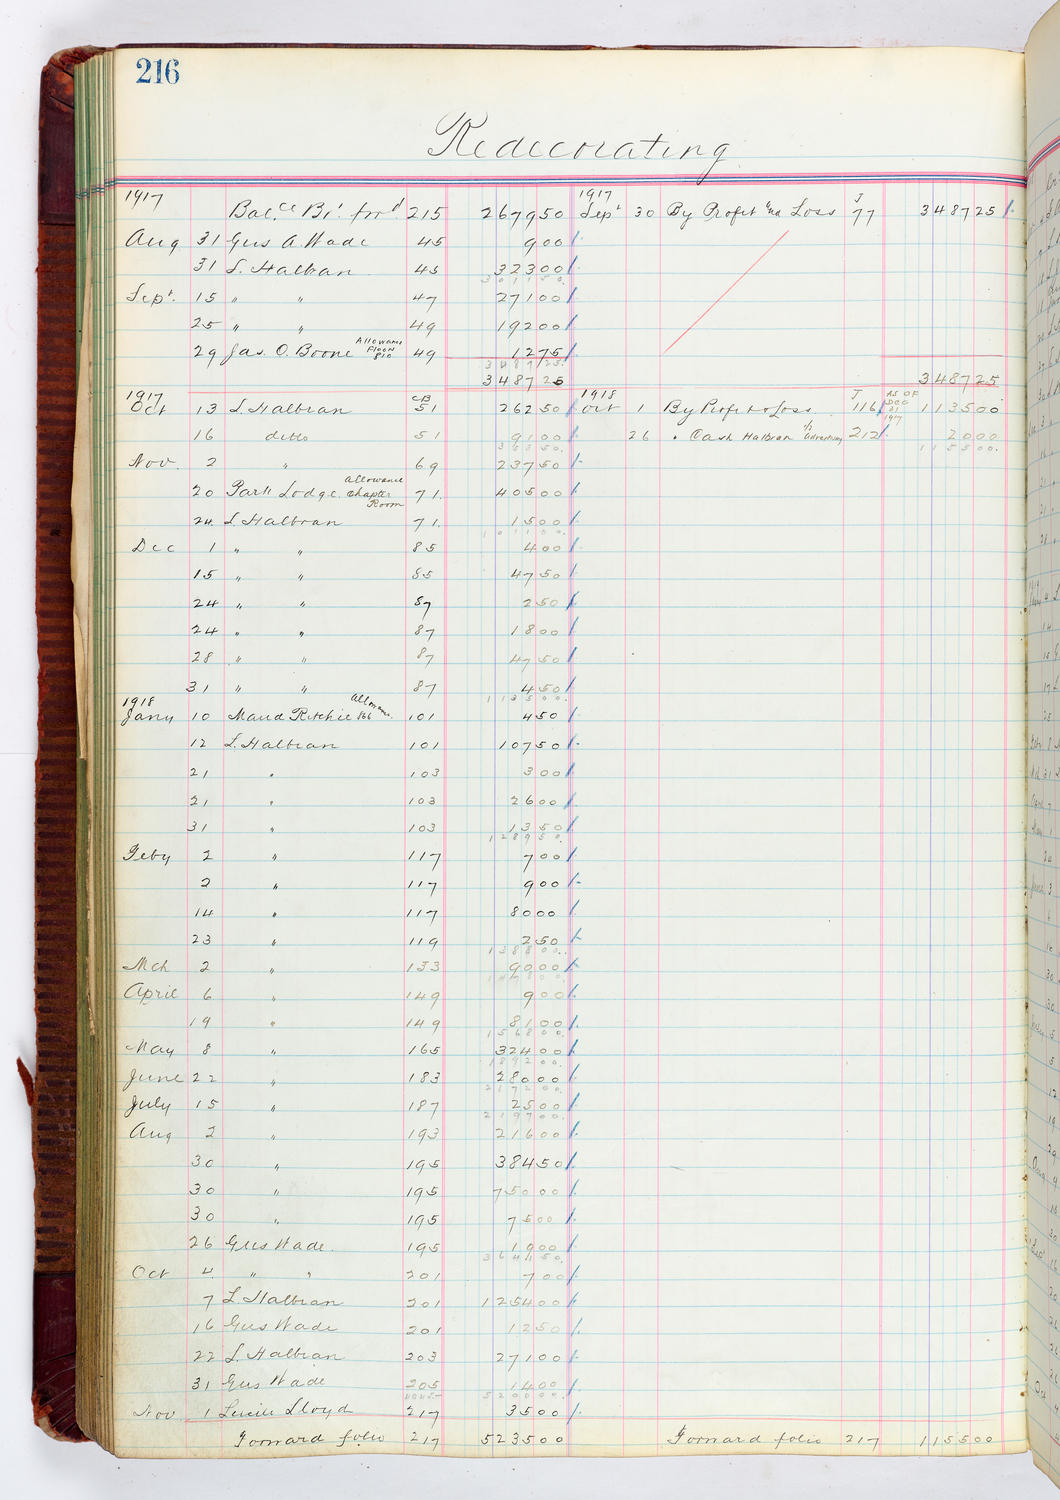 216
Redecorating
1917 Bal.ce Br.t forr.d 215 267950
1917 Sept 30 By Profit & Loss J 77 348725
Aug 31 Gus A. Wade 45 900
31 L. Halbran 45 32300
301150
Sept. 15 " " 47 27100
25 " " 49 19200
29 Jas. O. Boone Allowance Floor 810 49 1275
348725
348725 348725
1917 Oct 13 L. Halbran CB 51 26250
1918 Oct 1 By Profit & Loss J 116 AS OF DEC 31 1917 113500
16 ditto 51 9100
26 " Cash Halbran Advertising 212 2000
35350 115500
Nov. 2 " 69 23750
20 Park Lodge. Allowance Chapter Room 71 40500
24 L. Halbran 71 1500
101100
Dec 1 " " 85 400
15 " " 85 4750
24 " " 87 250
24 " " 87 1800
28 " " 87 4750
31 " " 87 450
113500
1918 Jany 10 Maud Ritchie Allowance 866 101 450
12 L. Halbran 101 10750
21 " 103 300
21 " 103 2600
31 " 103 1350
128950
Feby 2 " 117 700
2 " 117 900
14 " 117 8000
23 " 119 250
138800
Mch 2 " 133 9000
147800
April 6 " 149 900
19 " 149 8100
156800
May 8 " 165 32400
189200
June 22 " 183 28000
217200
July 15 " 187 2500
219700
Aug 2 " 193 21600
30 " 195 38450
30 " 195 75000
30 " 195 7500
26 Gus Wade 195 1900
364150
Oct 4 " " 201 700
7 L. Halbran 201 125400
16 Gus Wade 201 1250
22 L. Halbran 203 27100
31 Gus Wade 205 1400
520000
Nov 1 Lucile Lloyd 217 3500
Forward folio 217 523500 Forward folio 217 115500